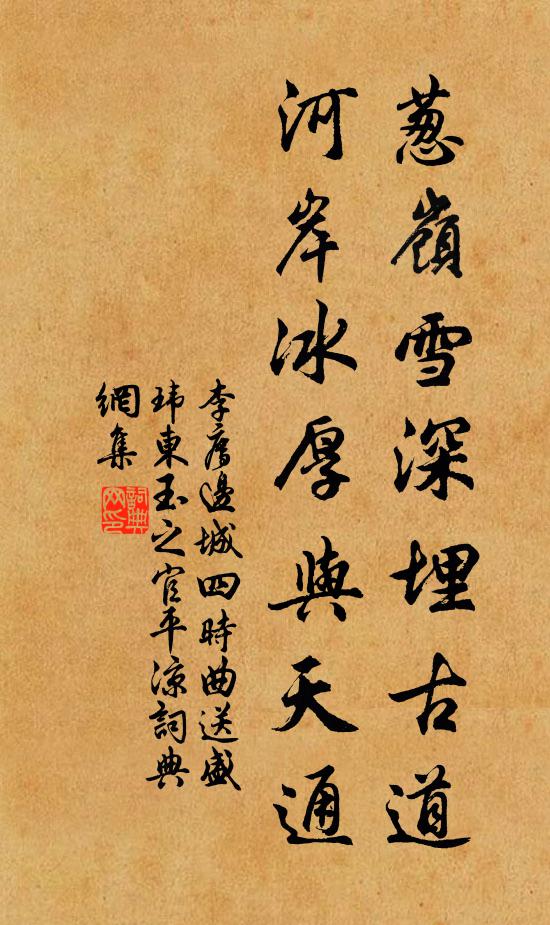 葱嶺雪深埋古道
河岸冰厚與天通
李廌邊城四時曲送盛
瑋東玉之官平涼詞典
網集
詞典
网印